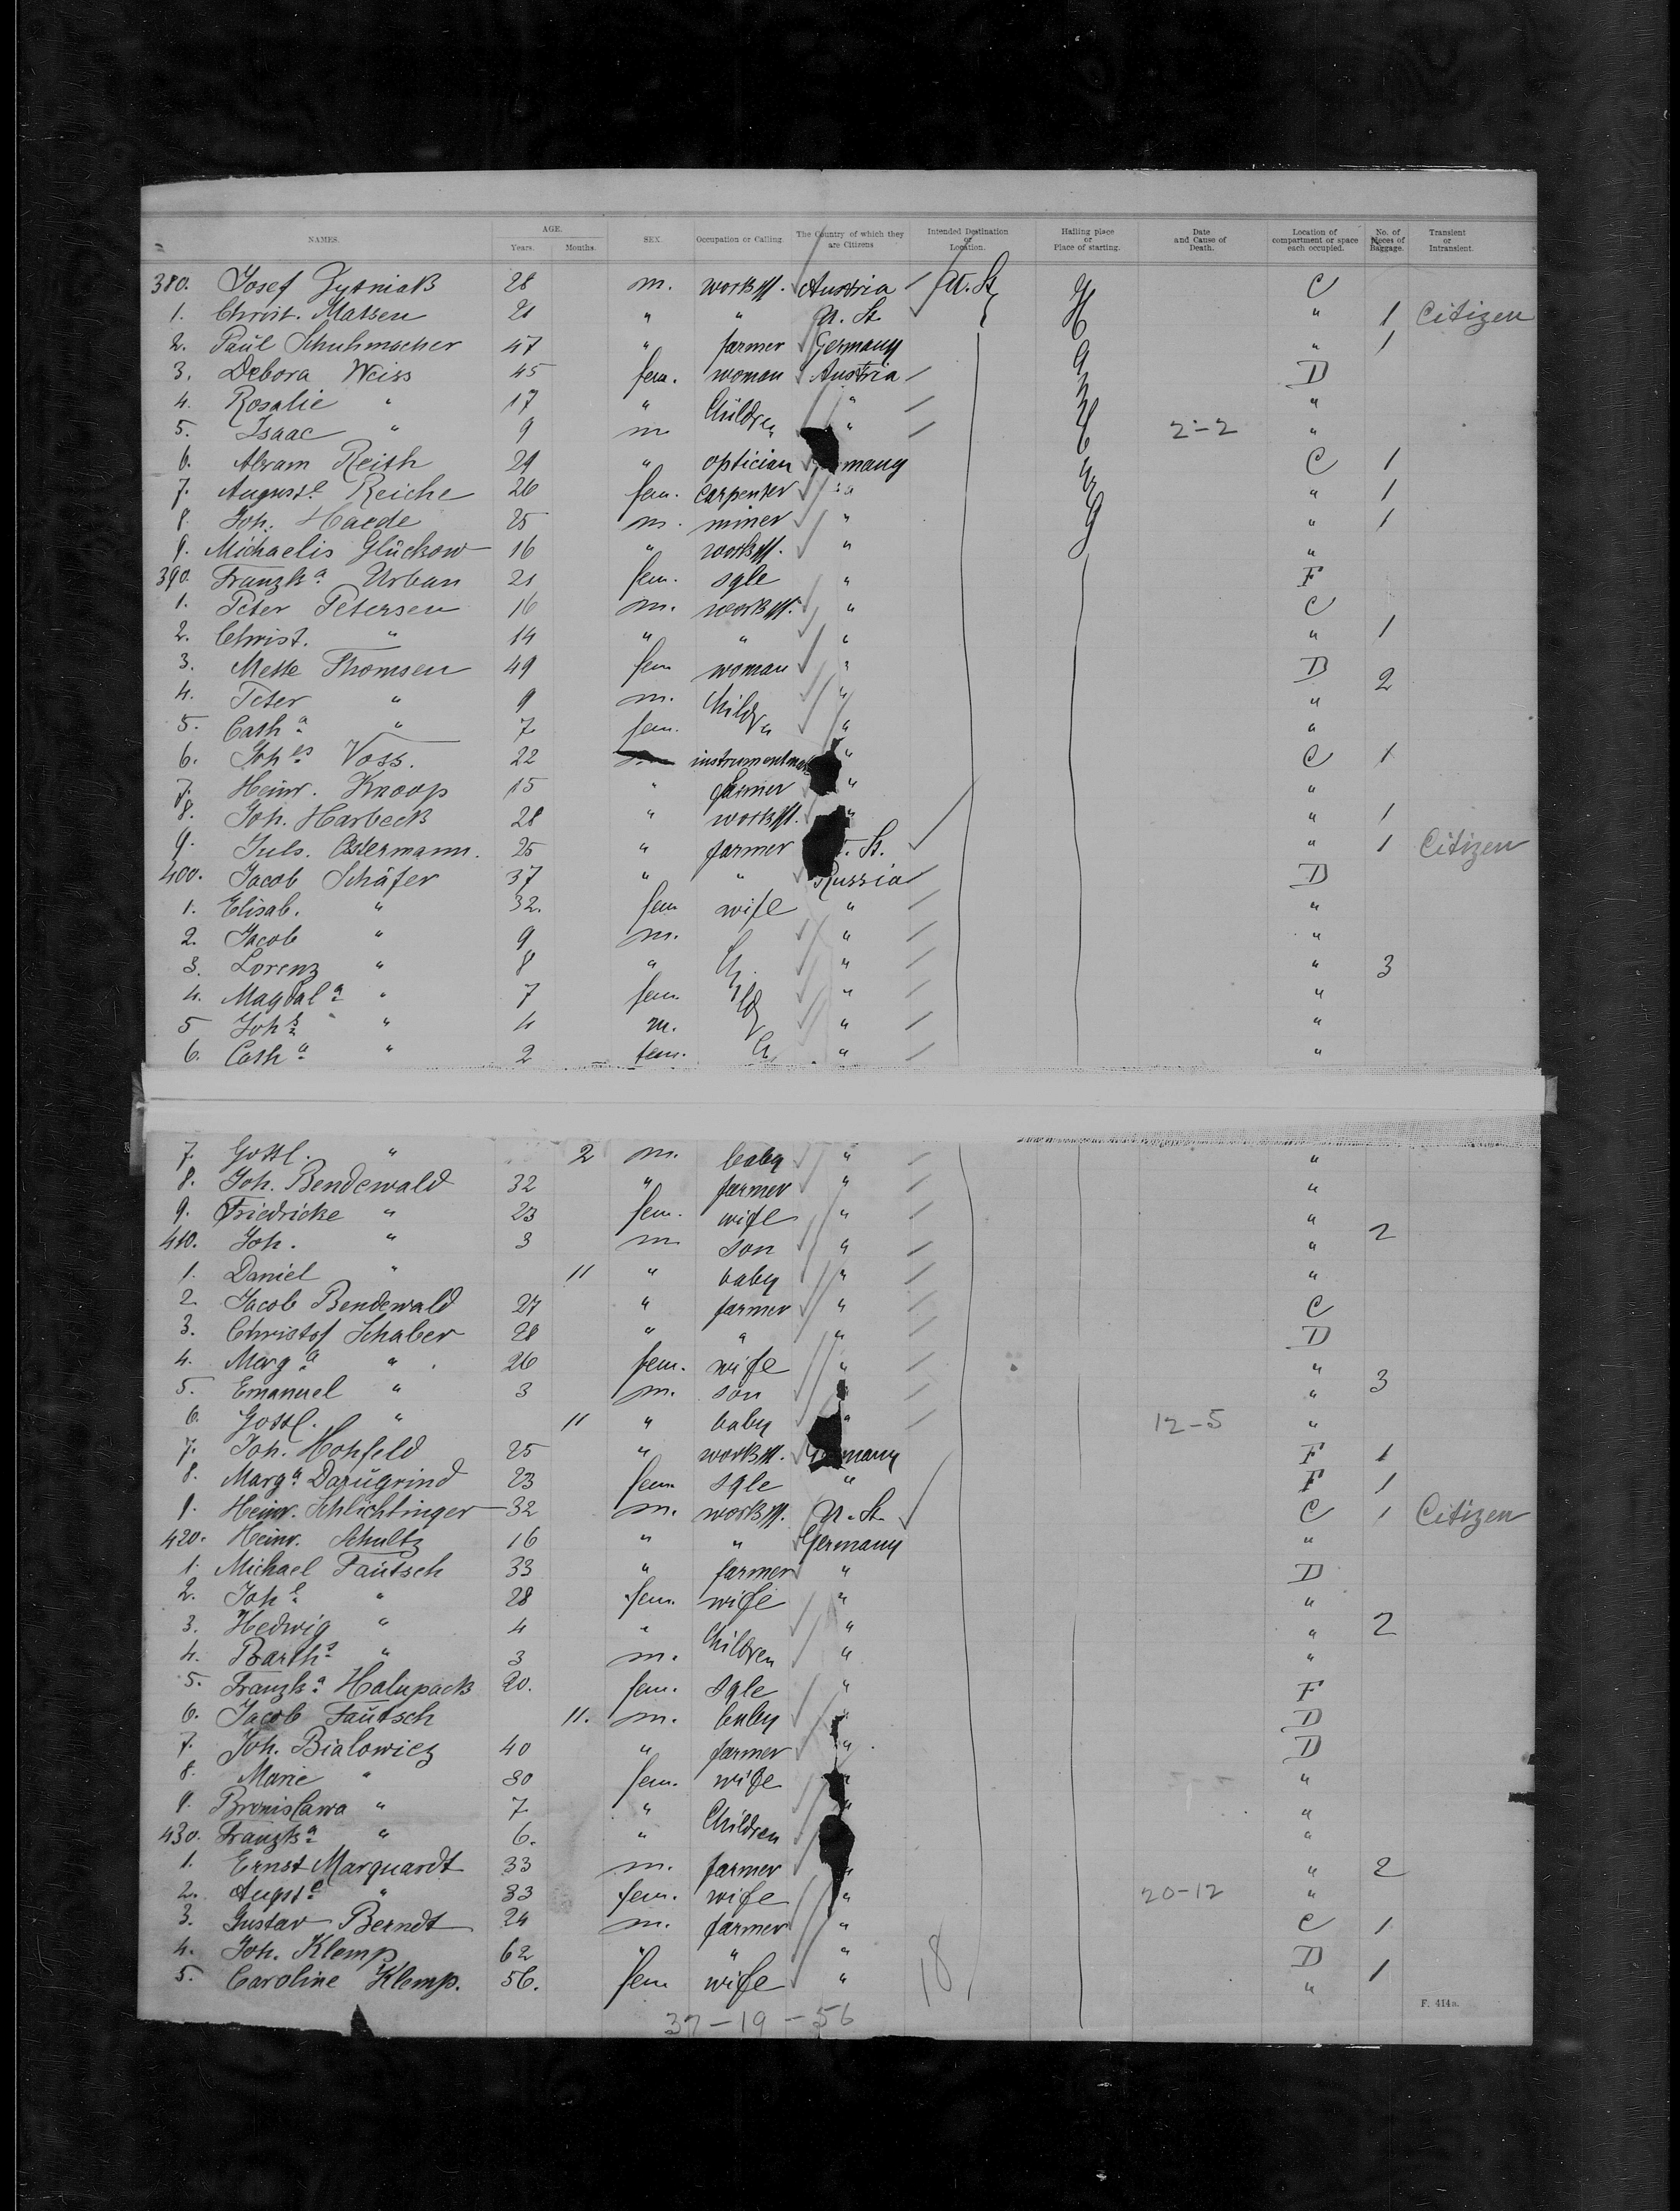 NAMES. AGE. Years. Months. SEX. Occupation or Calling. The Country of which they are Citizens Intended Destination or Location. Hailing place or Place of starting. Date and Cause of Death. Location of compartment or space each occupied. No. of Pieces of Baggage. Transient or Intransient.
380. Josef 28 m. Austria U. St. C
1. Christ. Matsen 21 " " U. St. " 1 Citizen
2. Paul Schuhmacher 47 " farmer Germany " 1
3. Debora Weiss 45 fem. woman Austria D
4. Rosalie " 17 " Children " "
5. Isaac " 9 m " 2-2 "
6. Abram Reith 29 " optician many C 1
7. August.e Reiche 26 fem. carpenter " " 1
8. Joh. Haede 25 m. miner " " 1
9. Michaelis Glückow 16 " " "
390. Franzk.a Urban 21 fem. sgle " F
1. Peter Petersen 16 m. " C
2. Christ. " 14 " " " " 1
3. Mette Thomsen 49 fem woman " D 2
4. Peter " 9 m. Children " "
5. Cath.a " 7 fem. " "
6. Joh.es Voss. 22 " C 1
7. Heinr. Knoop 15 " farmer " "
8. Joh. Harbeck 28 " " " 1
9. Juls. Ostermann. 25 " farmer . St. " 1 Citizen
400. Jacob Schäfer 37 " " Russia D
1. Elisab. " 32. fem wife " "
2. Jacob " 9 m. " "
3. Lorenz " 8 " " " 3
4. Magdal.a " 7 fem. " "
5 Joh.s " 4 m. " "
6. Cath.a " 2 fem. " "
7. Gottl. " 2 m. baby " "
8. Joh. Bendewald 32 " farmer " "
9. Friedricke " 23 fem. wife " " 2
410. Joh. " 3 m son " "
1. Daniel " 11 " baby " "
2 Jacob Bendewald 27 " farmer " C
3. Christof Schaber 28 " " " D
4. Marg.a " 26 fem. wife " " 3
5. Emanuel " 3 m. son "
6. Gottl. " 11 " baby " 12-5 "
7. Joh. Hohfeld 25 " Germany F 1
8. Marg.a Darugrind 23 fem sgle " F 1
9. Heinr. Schlichtinger 32 m. U. St. C 1 Citizen
420. Heinr. Schultz 16 " " Germany "
1. Michael Fautsch 33 " farmer " D
2. Joh.e " 28 fem. wife " "
3. Hedwig " 4 " Children " " 2
4. Barth.s " 3 m. " "
5. Franzk.a Halupack 20. fem. sgle " F
6. Jacob Fautsch 11. m. baby " D
7. Joh. Bialowicz 40 " farmer " D
8. Marie " 30 fem. wife " "
9. Bronislawa " 7 " Children " "
430. Franzk.a " 6. " "
1. Ernst Marquardt 33 m. farmer " " 2
2. August.e " 33 fem. wife " 20-12 "
3. Gustav Berndt 24 m. farmer " C 1
4. Joh. Klemp 62 " " " D
5. Caroline Klemp. 56. fem wife " " 1
18
F. 414a.
37-19-56